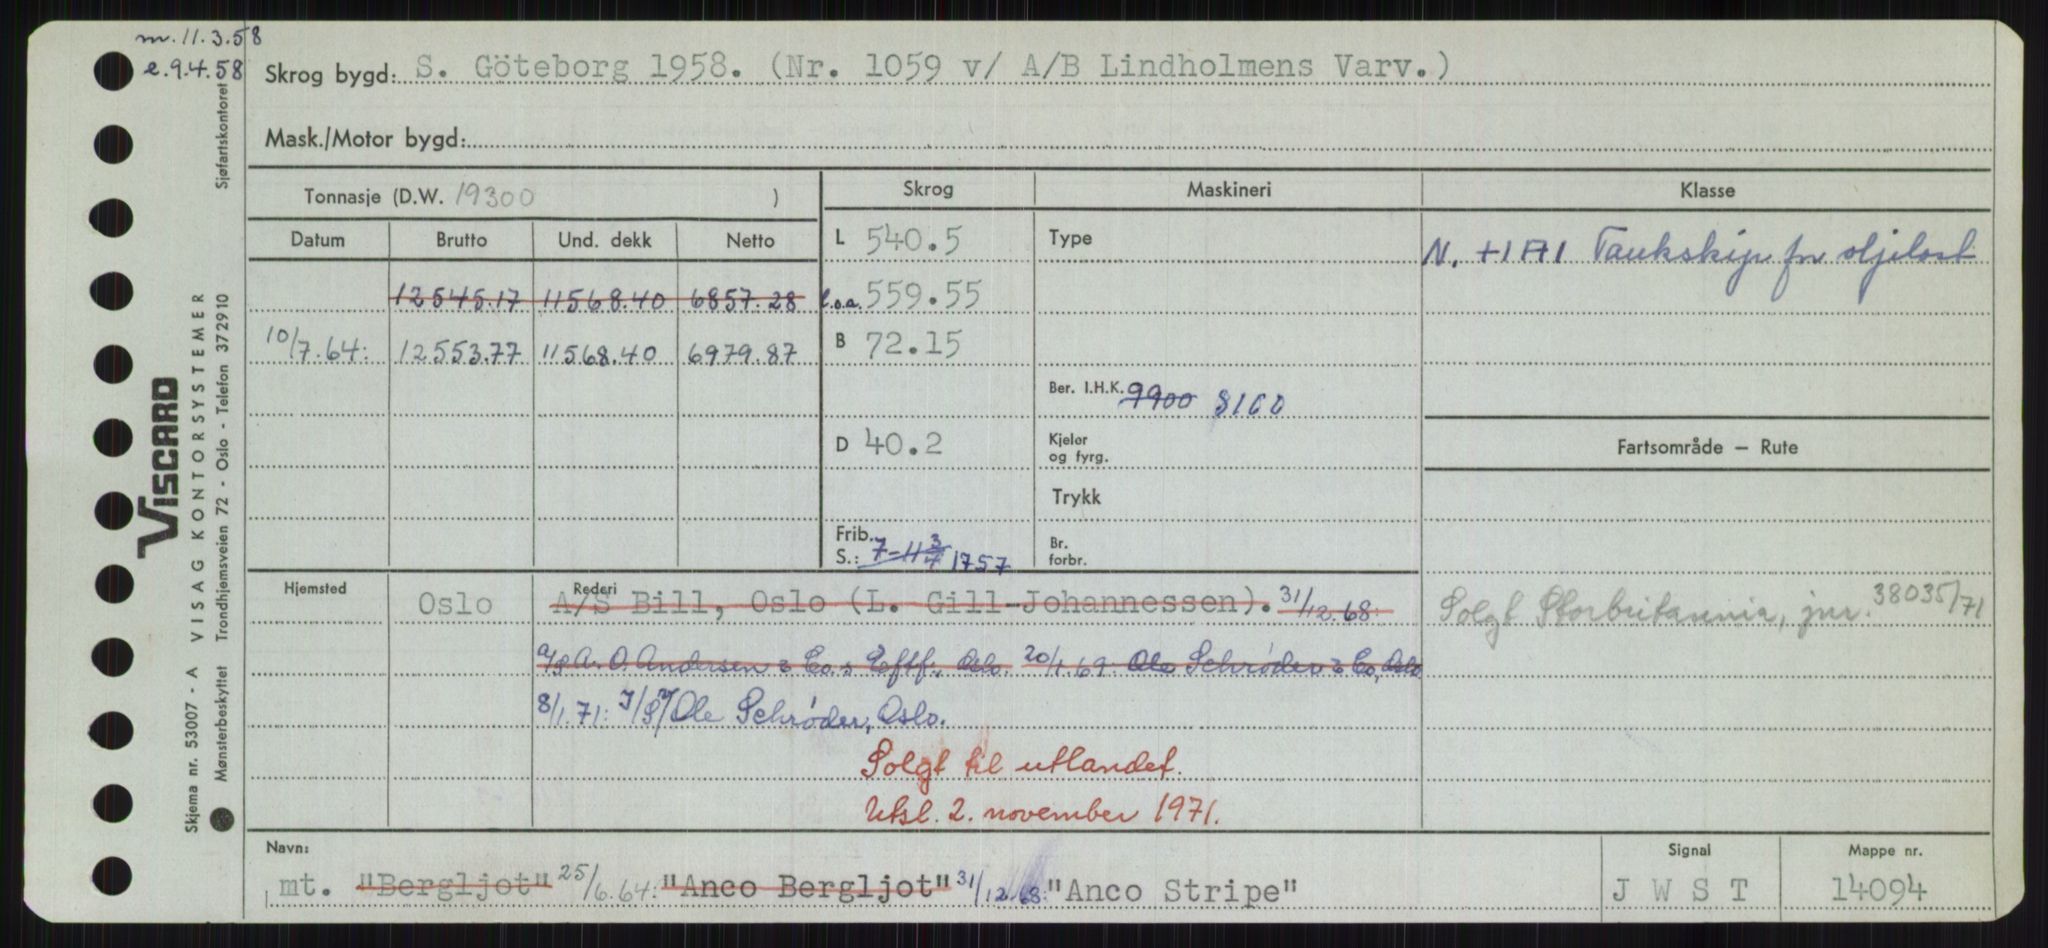 m. 11.3.58
e. 9.4.58
Skrog bygd: S. Göteborg 1958. (Nr. 1059 v/ A/B Lindholmens Varv.)
Mask./Motor bygd:
Tonnasje (D.W. 19300 )
Skrog
Maskineri
Klasse
Datum Brutto Und. dekk Netto
L 540.5
Type
N. +1A1 Tankskip for oljelast
12545.17 11568.40 6857.28
l.o.a. 559.55
10/7.64: 12553.77 11568.40 6979.87
B 72.15
Ber. I.H.K. 9900 8160
D 40.2
Kjeler og fyrg.
Fartsområde – Rute
Trykk
Frib. S.: 7-11 3/4 1757
Br. forbr.
Hjemsted Oslo
Rederi
A/S Bill, Oslo (L. Gill-Johannessen). 31/12.68:
Solgt Storbritannia, jnr. 38035/71
A/S A. O. Andersen & Co.s Eftf., Oslo. 20/1.69: Ole Schrøder & Co, Oslo
8/1.71: I/S Ole Schrøder, Oslo.
Solgt til utlandet.
Utsl. 2. november 1971.
Navn:
mt. "Bergljot" 25/6.64: "Anco Bergljot" 31/12.68: "Anco Stripe"
Signal
J W S T
Mappe nr.
14094
Skjema nr. 53007 - A VISAG KONTORSYSTEMER
VISCARD
Mønsterbeskyttet Trondhjemsveien 72 - Oslo - Telefon 372910 Sjøfartskontoret